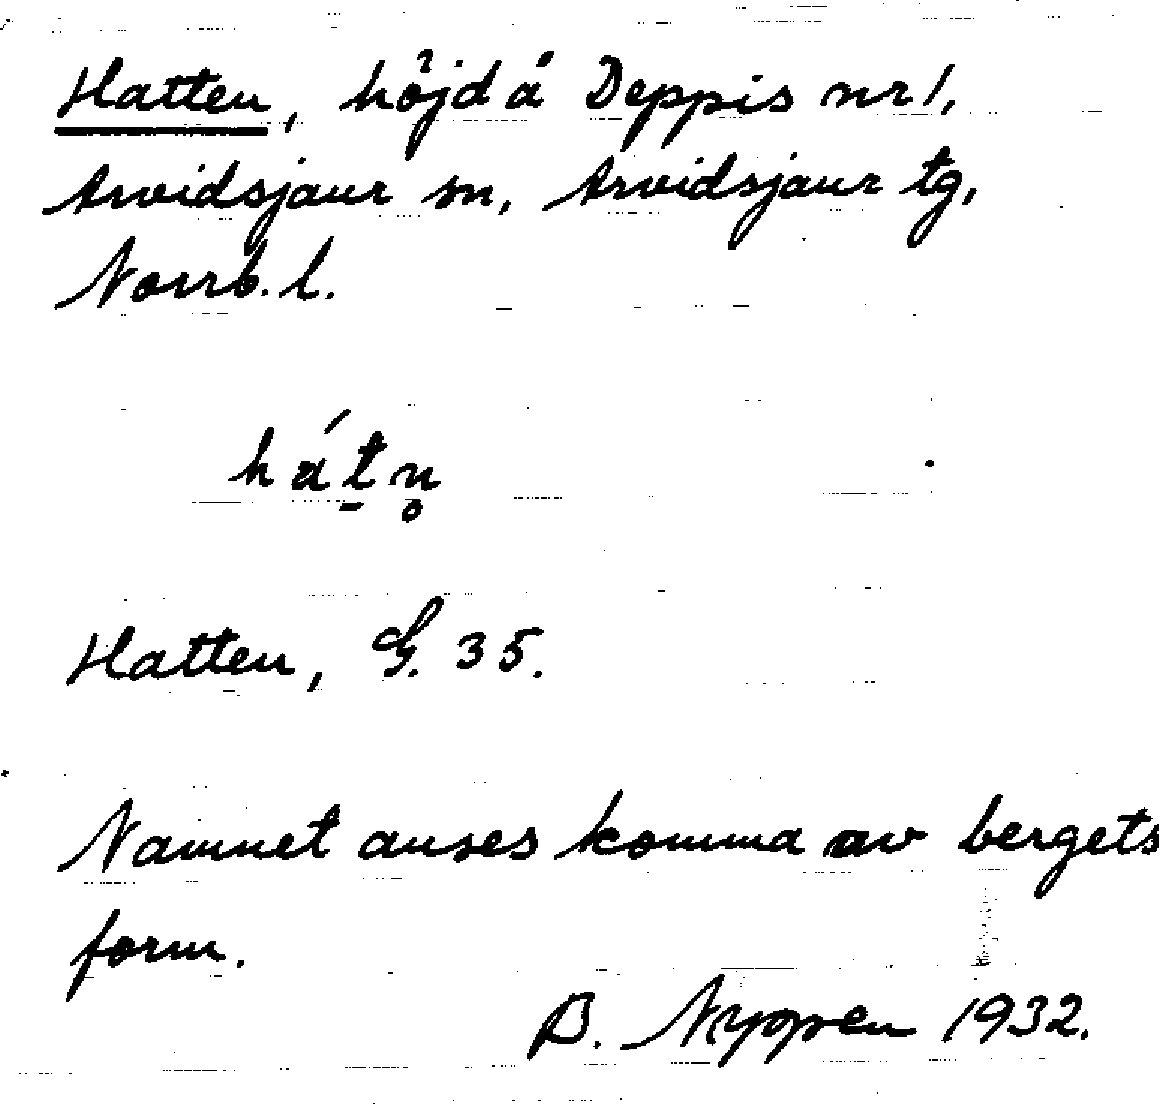 Hatten, höjd å Deppis nr 1,
Arvidsjaur sn, Arvidsjaur tg,
Norrb. l.
hát̠n̥
Hatten, G. 35.
Namnet anses komma av bergets
form.
B. 1932.